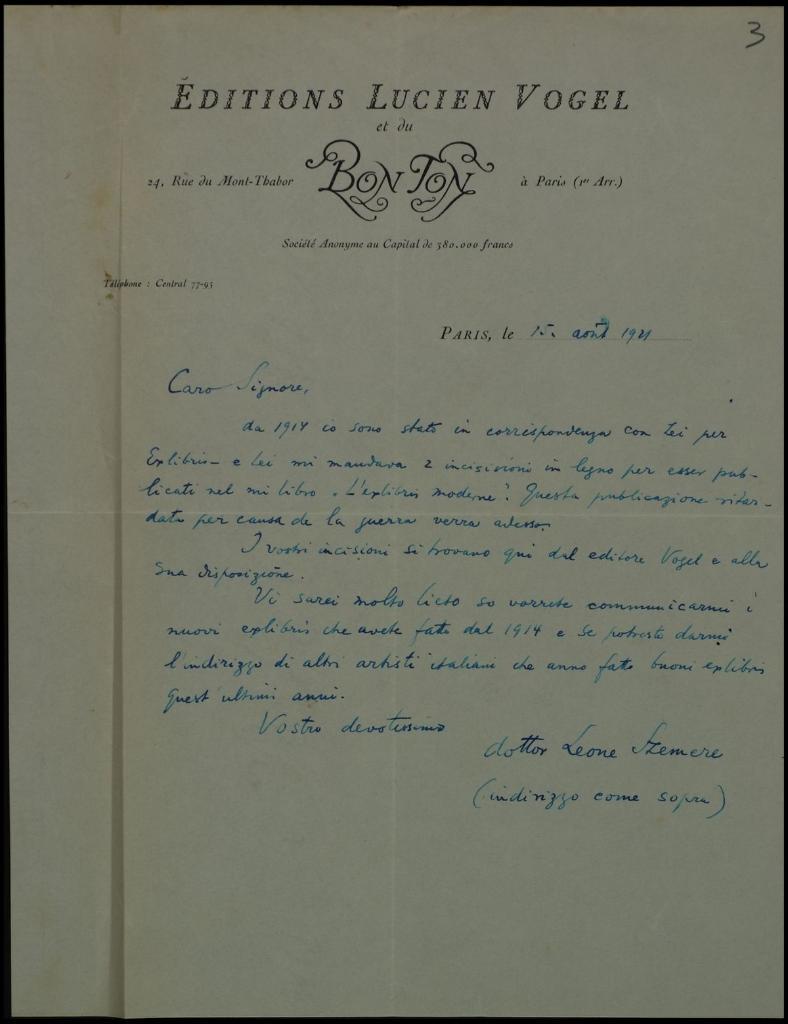 3
ÉDITIONS LUCIEN VOGEL
et du
24, Rue du Mont-Thabor BON TON à Paris (1er Arr.)
Société Anonyme au Capital de 380.000 francs
Téléphone : Central 77-95
PARIS, le 15. août 1921
Caro Signore,
da 1914 io sono stato in corrispondenza con Lei per
Exlibris – e Lei mi mandava 2 incisioni in legno per esser pub-
licati nel mi libro „L'exlibris moderne". Questa publicazione ritar-
data per causa de la guerra verra adesso.
I vostri incisioni si trovano qui dal editore Vogel e alla
Sua disposizione.
Vi sarei molto lieto so vorrete communicarmi i
nuovi exlibris che avete fatto dal 1914 e se potreste darmi
l'indirizzo di altri artisti italiani che anno fatto buoni exlibris
quest'ultimi anni.
Vostro devotissimo
dottor Leone Szemere
(indirizzo come sopra)